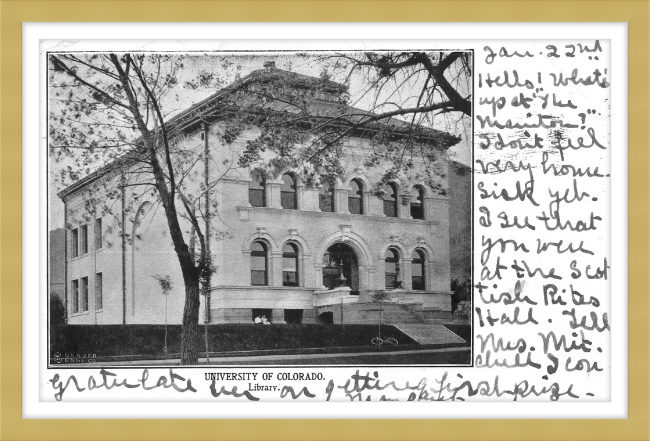 Jan. 22nd
Hello! What's
up at "The
Manitou?"
I don't feel
very home-
sick yet.
I see that
you were
at the Scot
tish Rites
Hall. Tell
Mrs. Mit.
chell I con
gratulate her on getting first prize.
UNIVERSITY OF COLORADO.
Library.
DENVER